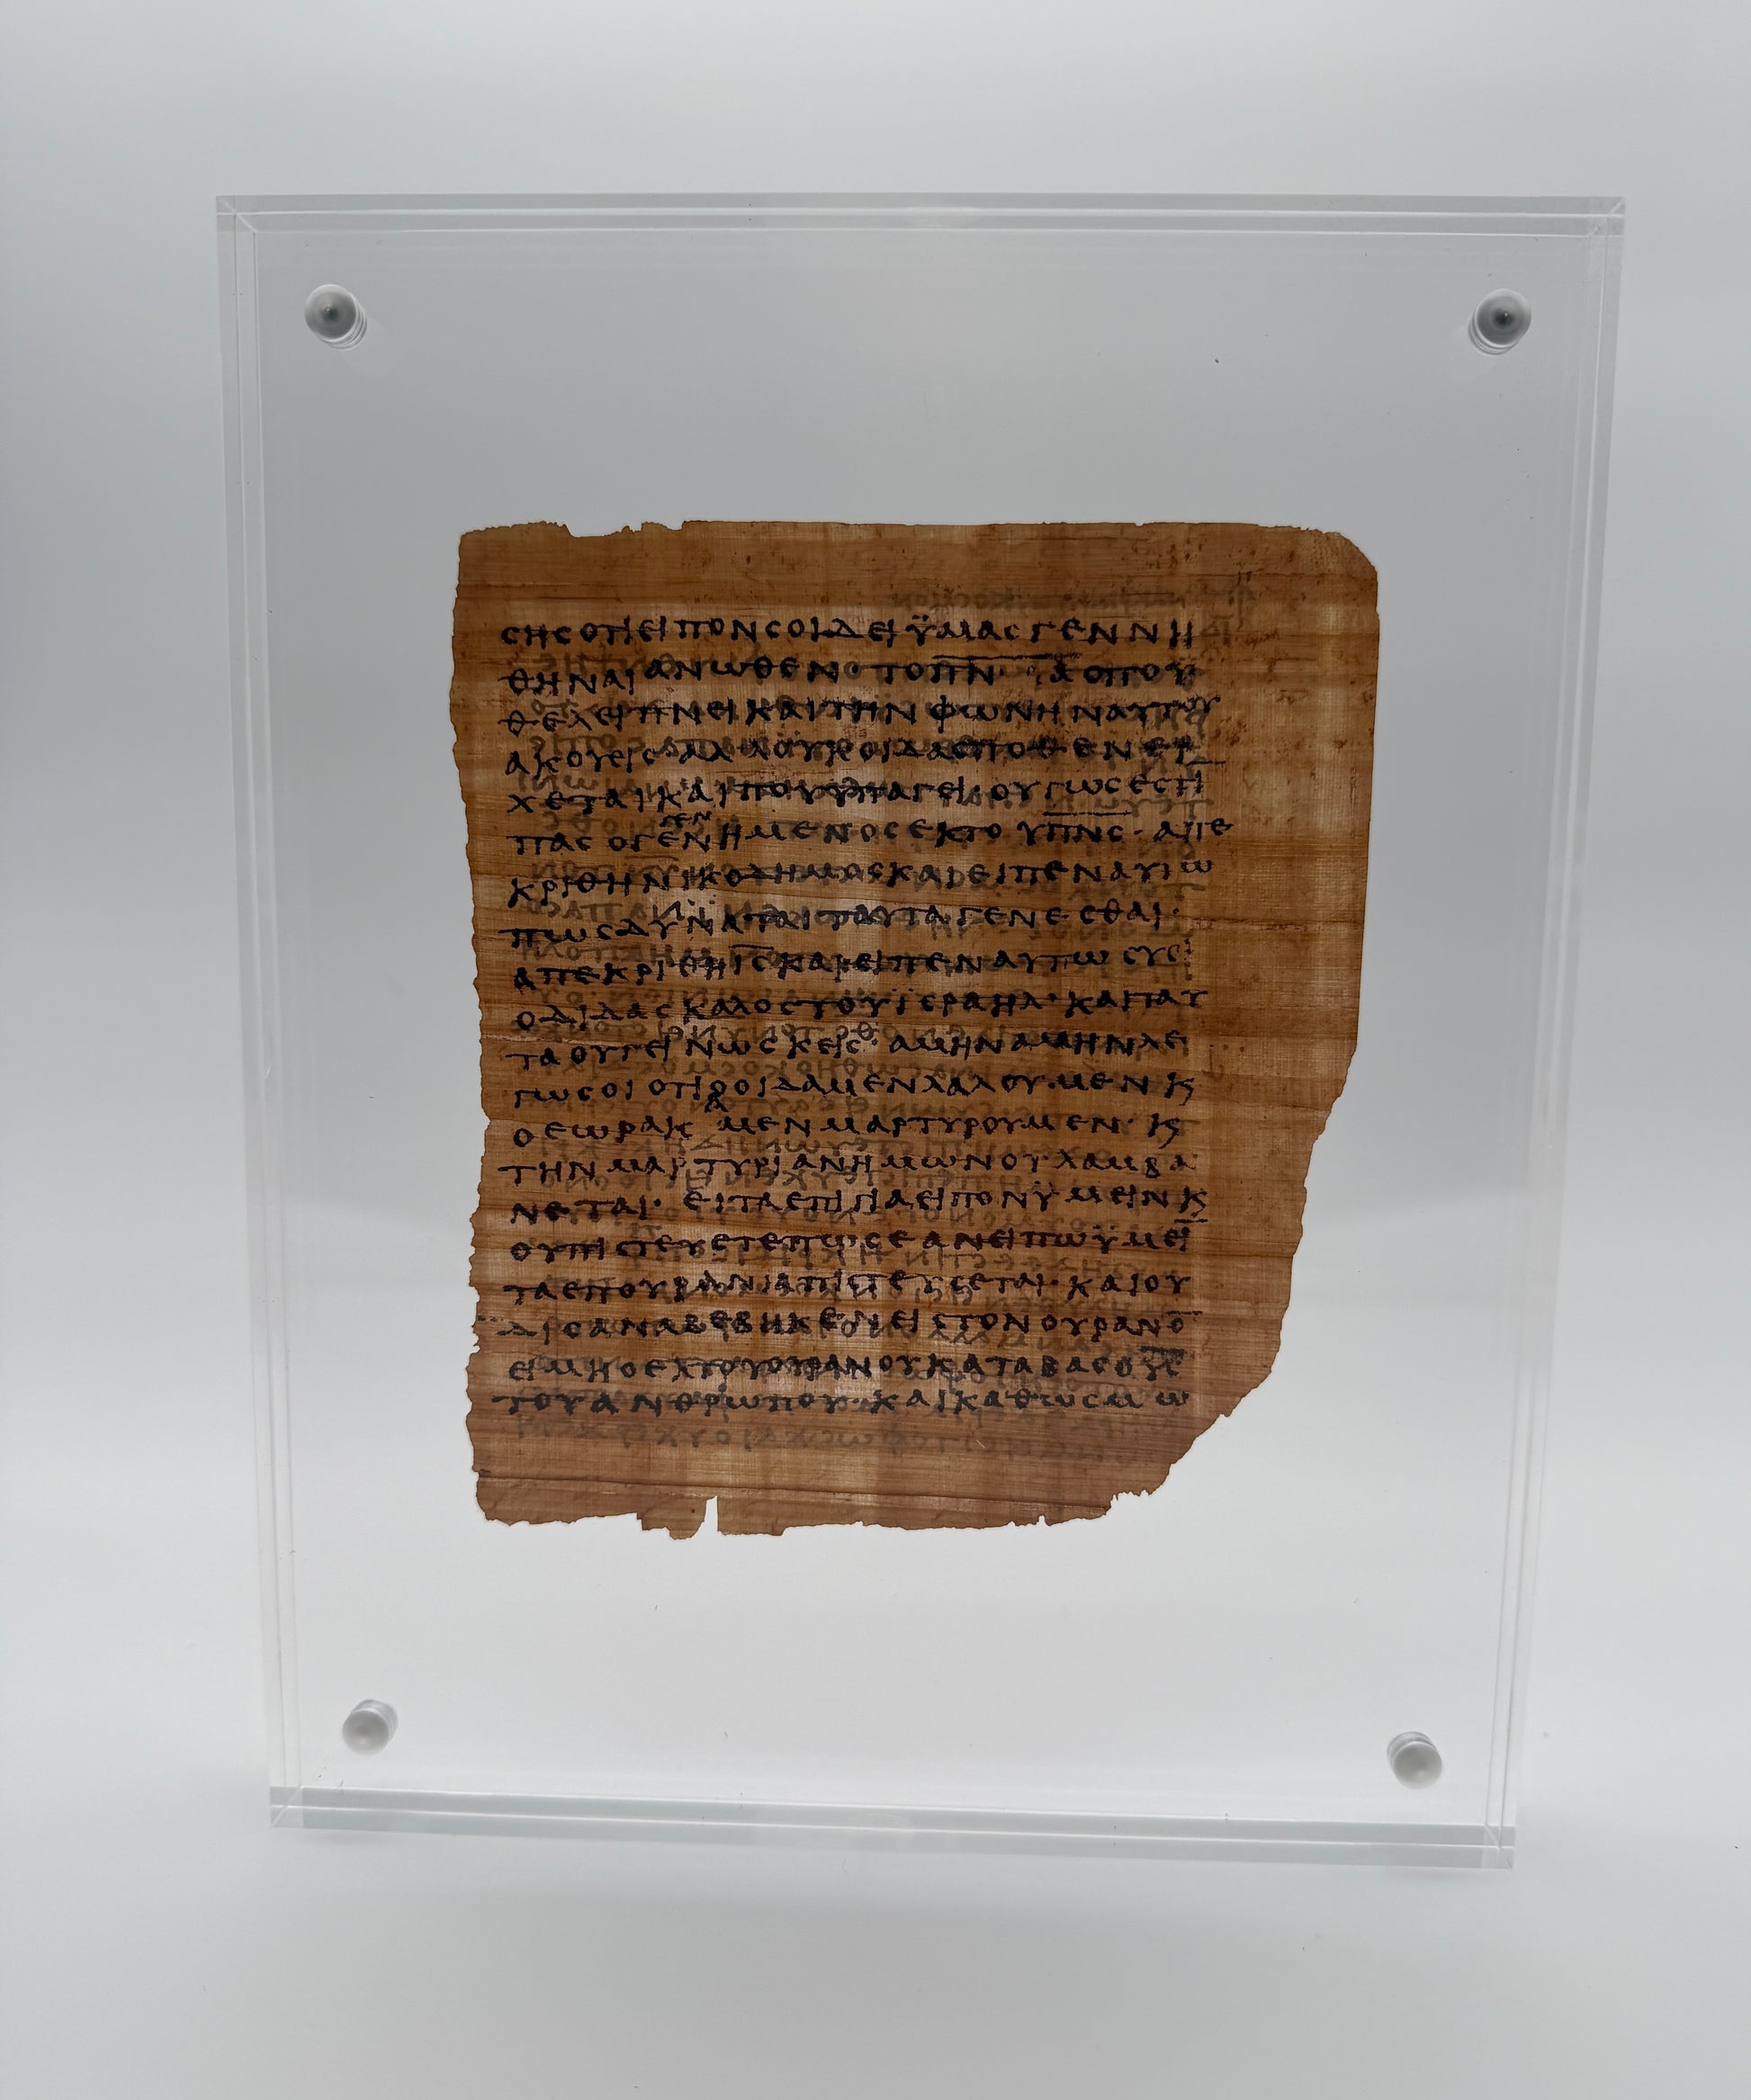 ϹΗϹΟΤΙΕΙΠΟΝϹΟΙΔΕΙΫΜΑϹΓΕΝΝΗ
ΘΗΝΑΙΑΝΩΘΕΝ·ΤΟΠ̅Ν̅Α̅ΟΠΟΥ
ΘΕΛΕΙΠΝΕΙΚΑΙΤΗΝΦΩΝΗΝΑΥΤΟΥ
ΑΚΟΥΕΙϹΑΛΛΟΥΚΟΙΔΑϹΠΟΘΕΝΕΡ
ΧΕΤΑΙΚΑΙΠΟΥΫΠΑΓΕΙ·ΟΥΤΩϹΕϹΤΙ̅
ΠΑϹΟΓΕΓΕΝΝΗΜΕΝΟϹΕΚΤΟΥΠ̅Ν̅Ϲ̅·ΑΠΕ
ΚΡΙΘΗΝΙΚΟΔΗΜΟϹΚΑΙΕΙΠΕΝΑΥΤΩ
ΠΩϹΔΥΝΑΤΑΙΤΑΥΤΑΓΕΝΕϹΘΑΙ·
ΑΠΕΚΡΙΘΗΙ̅Ϲ̅ΚΑΙΕΙΠΕΝΑΥΤΩϹΥΕΙ
ΟΔΙΔΑϹΚΑΛΟϹΤΟΥΪϹΡΑΗΛ·ΚΑΙΤΑΥ
ΤΑΟΥΓΕΙΝΩϹΚΕΙϹ·ΑΜΗΝΑΜΗΝΛΕ
ΓΩϹΟΙΟΤΙΟΟΙΔΑΜΕΝΛΑΛΟΥΜΕΝϏ
ΟΕΩΡΑΚΑΜΕΝΜΑΡΤΥΡΟΥΜΕΝ·Ϗ
ΤΗΝΜΑΡΤΥΡΙΑΝΗΜΩΝΟΥΛΑΜΒΑ
ΝΕΤΑΙ·ΕΙΤΑΕΠΙΓΙΑΕΙΠΟΝΫΜΕΙΝϏ
ΟΥΠΙϹΤΕΥΕΤΕΠΩϹΕΑΝΕΙΠΩΫΜΕΙ̅
ΤΑΕΠΟΥΡΑΝΙΑΠΙϹΤΕΥϹΕΤΑΙ·ΚΑΙΟΥ
ΔΙϹΑΝΑΒΕΒΗΚΕΝΕΙϹΤΟΝΟΥΡΑΝΟ̅
ΕΙΜΗΟΕΚΤΟΥΟΥΡΑΝΟΥΚΑΤΑΒΑϹΟΥ̅Ϲ̅
ΤΟΥΑΝΘΡΩΠΟΥ·ΚΑΙΚΑΘΩϹΜΩ